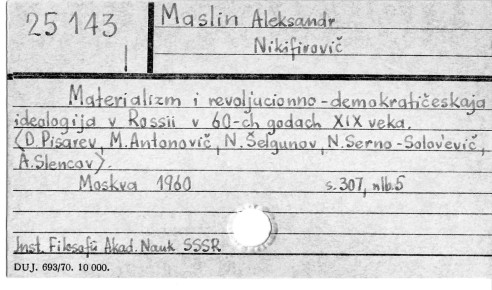 25 143
Maslin Aleksandr
Nikifirovič
Materializm i revoljucionno-demokratičeskaja
idealogija v Rossii v 60-ch godach XIX veka.
(D.Pisarev, M.Antonovič, N.Šelgunov, N.Serno-Solov'evič,
A.Slencov).
Moskva 1960 s.307, nlb.5
Inst. Filosofii Akad. Nauk SSSR
DUJ. 693/70. 10 000.